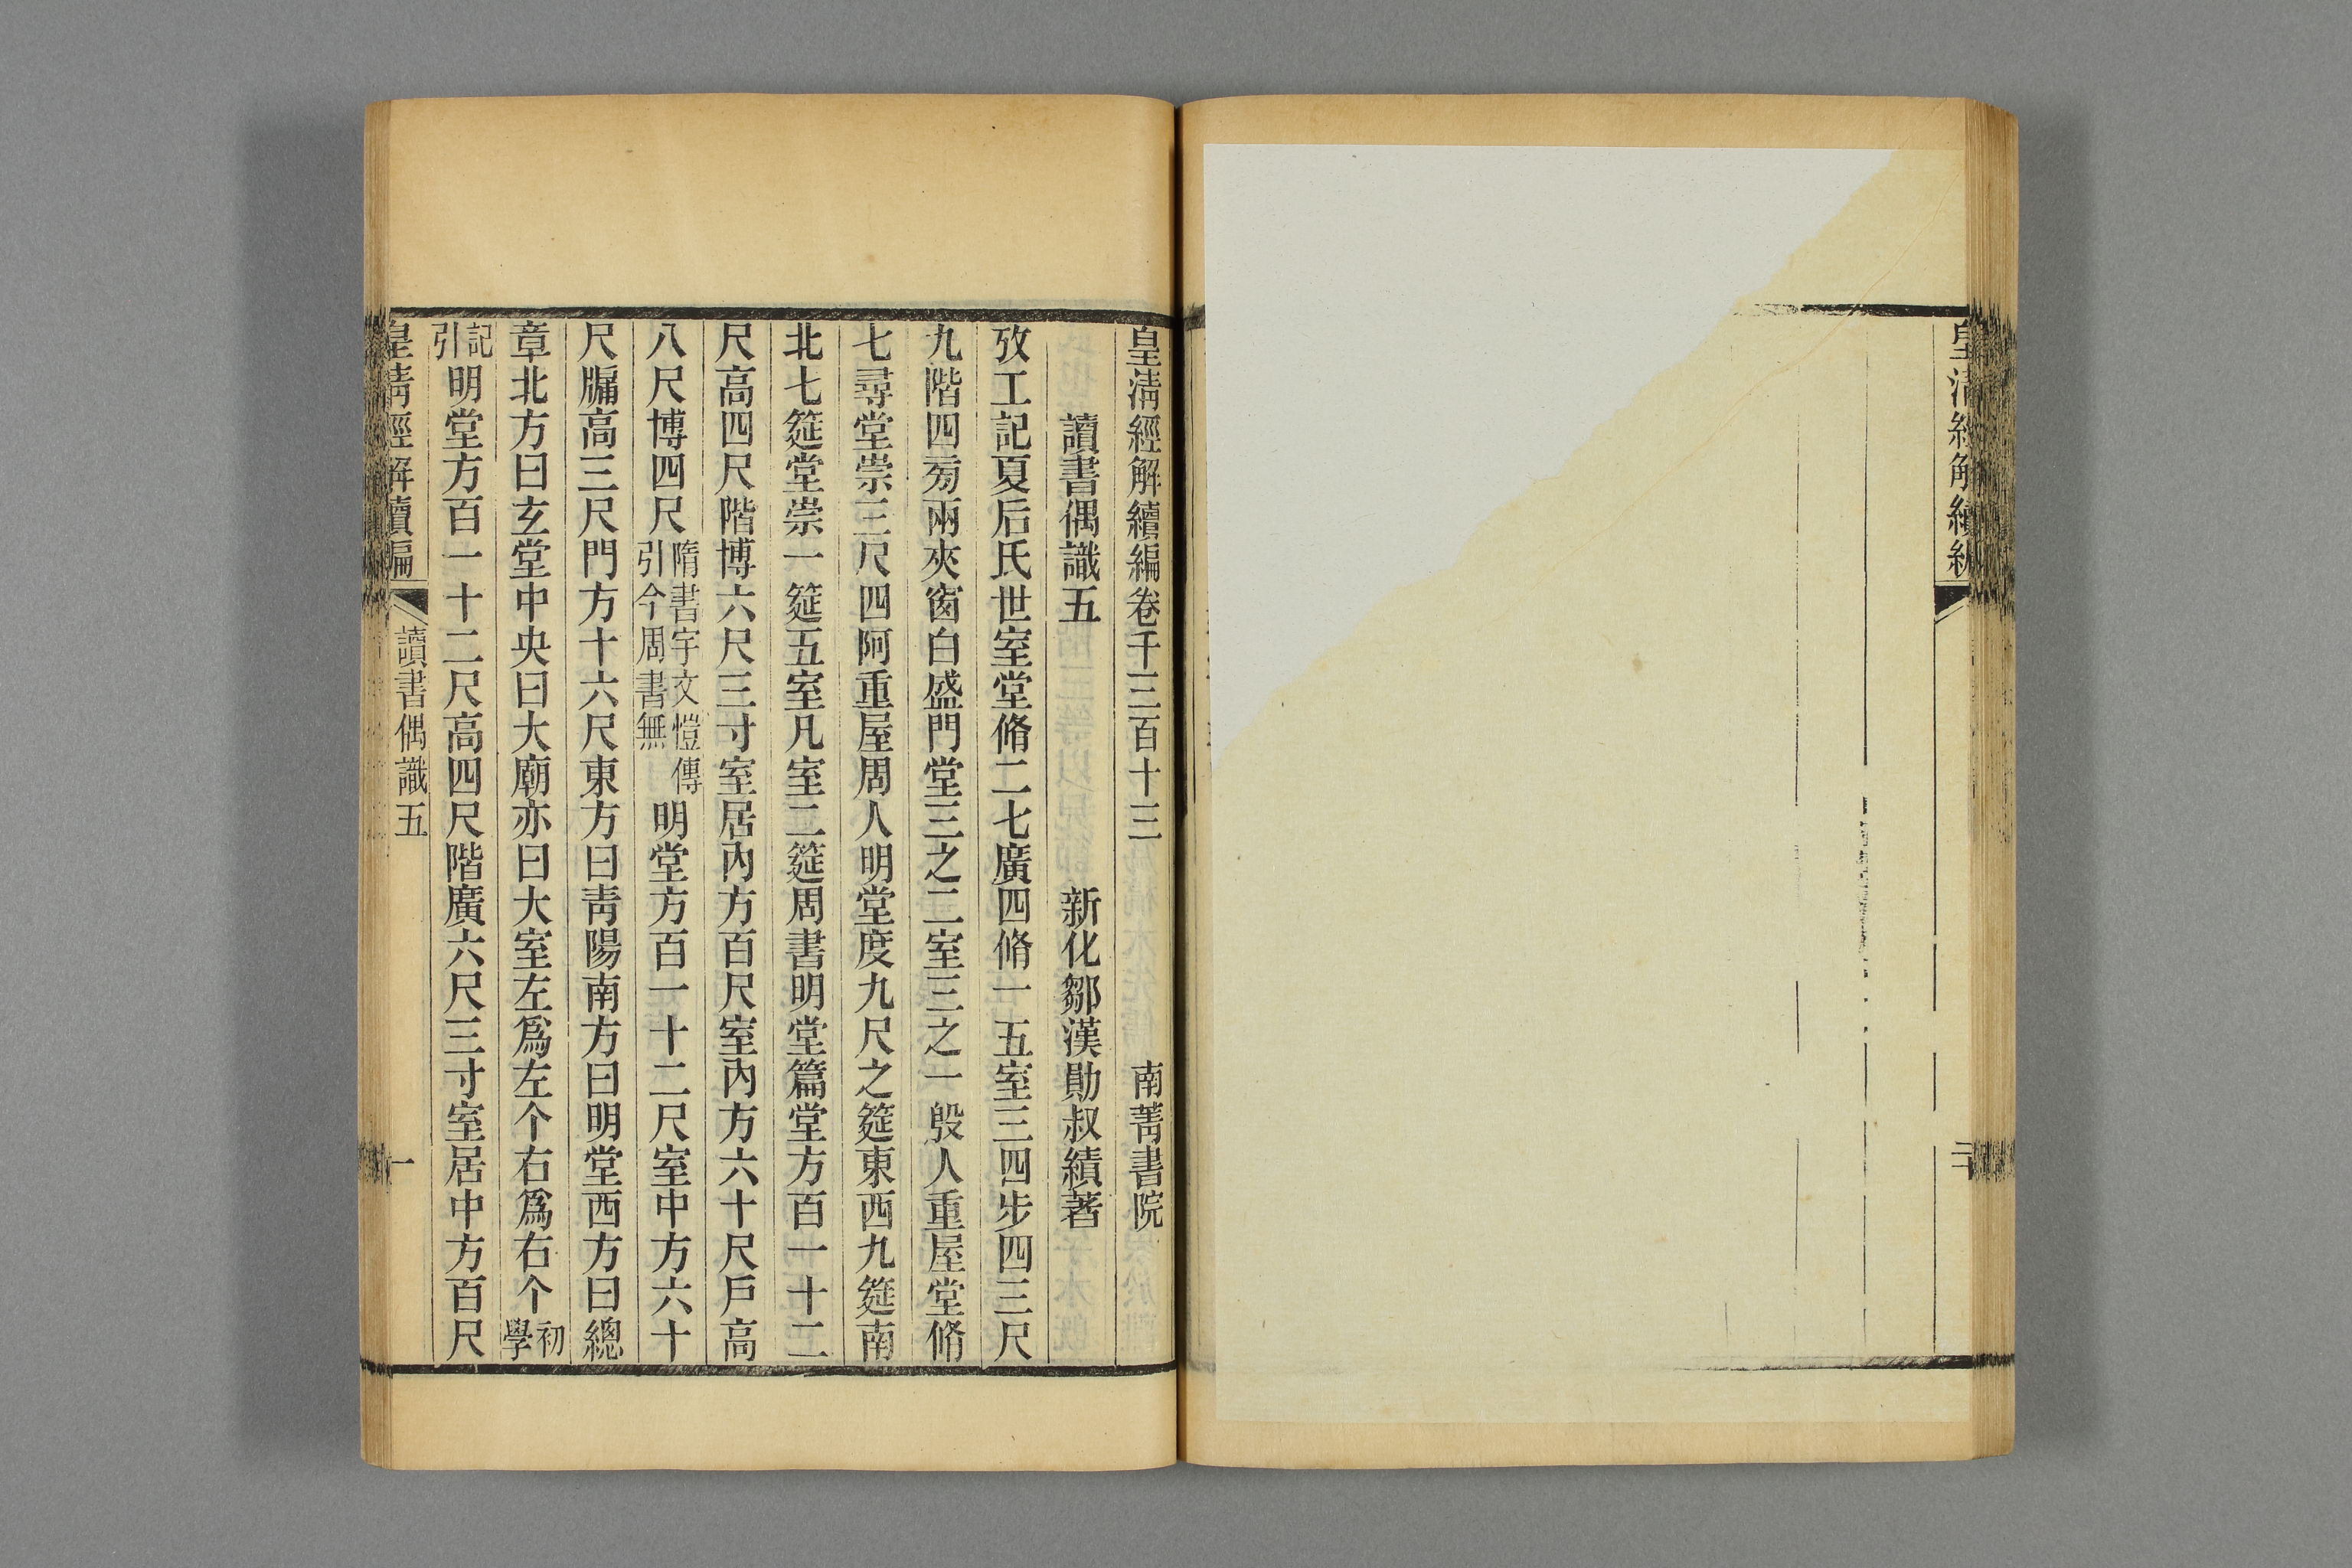 皇清經解續編
二十
皇清經解續編卷千三百十三 南菁書院
讀書偶識五 新化鄒漢勛叔績著
攷工記夏后氏世室堂脩二七廣四脩一五室三四步四三尺
九階四㫄兩夾窗白盛門堂三之二室三之一殷人重屋堂脩
七尋堂崇三尺四阿重屋周人明堂度九尺之筵東西九筵南
北七筵堂崇一筵五室凡室二筵周書明堂篇堂方百一十二
尺高四尺階博六尺三寸室居內方百尺室內方六十尺戶高
八尺博四尺隋書宇文愷傳引今周書無明堂方百一十二尺室中方六十
尺牖高三尺門方十六尺東方曰青陽南方曰明堂西方曰總
章北方曰玄堂中央曰大廟亦曰大室左爲左个右爲右个初學
記引明堂方百一十二尺高四尺階廣六尺三寸室居中方百尺
皇清經解續編 讀書偶識五 一